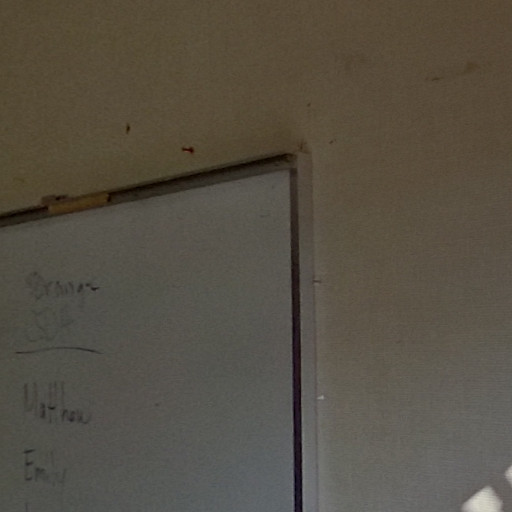 Orange
Matthew
Emily